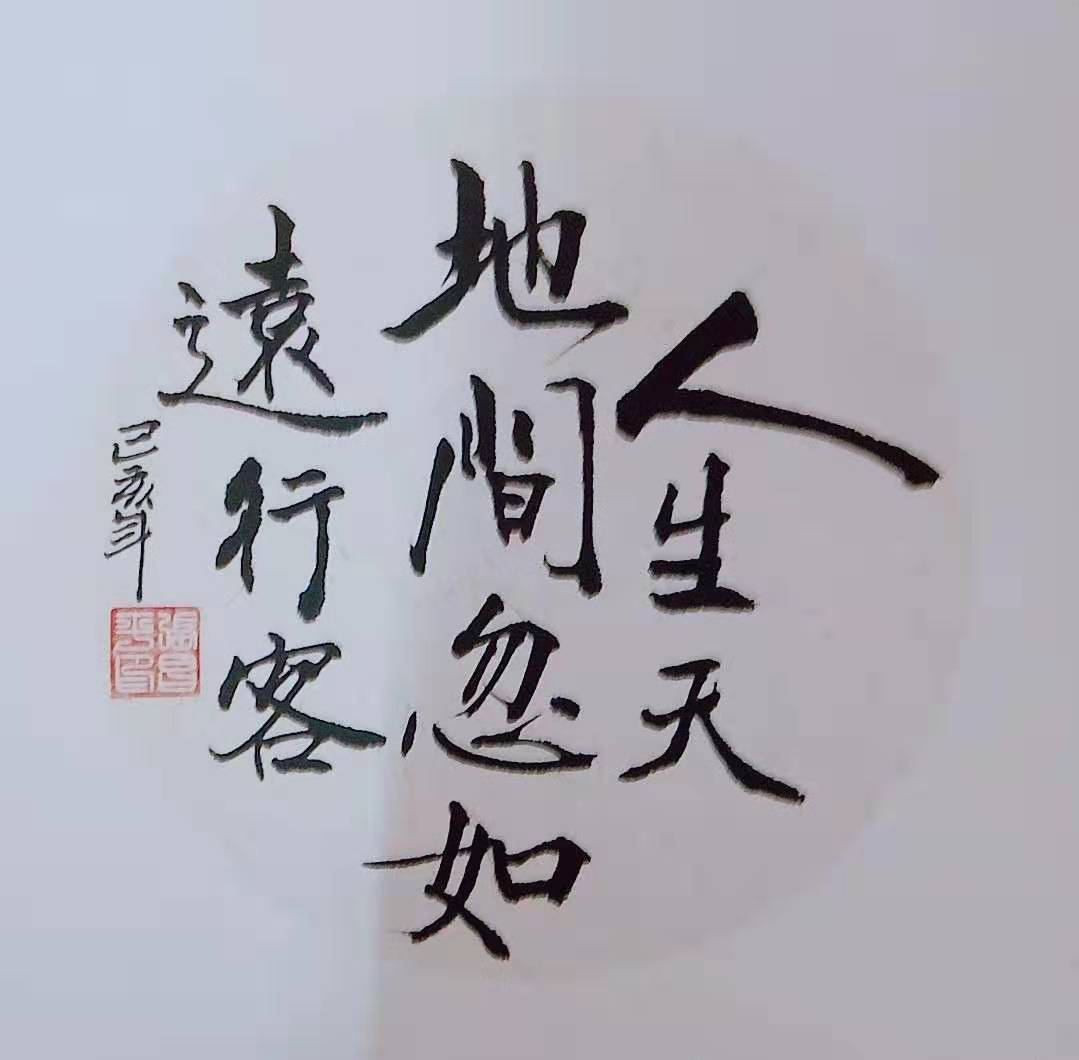 人生天
地間忽如
遠行客
己亥年